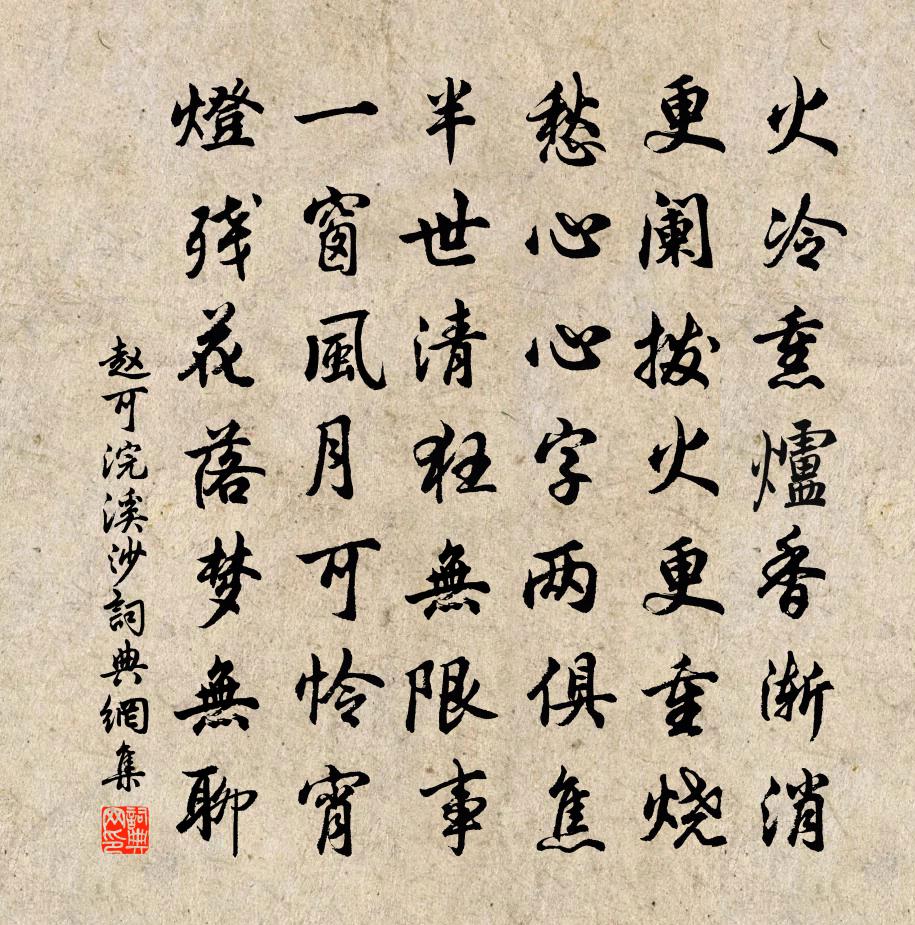 火冷熏爐香渐消
更阑拨火更重烧
愁心心字两俱焦
半世清狂無限事
一窗風月可怜宵
燈残花落梦無聊
赵可浣溪沙詞典網集
詞典网印